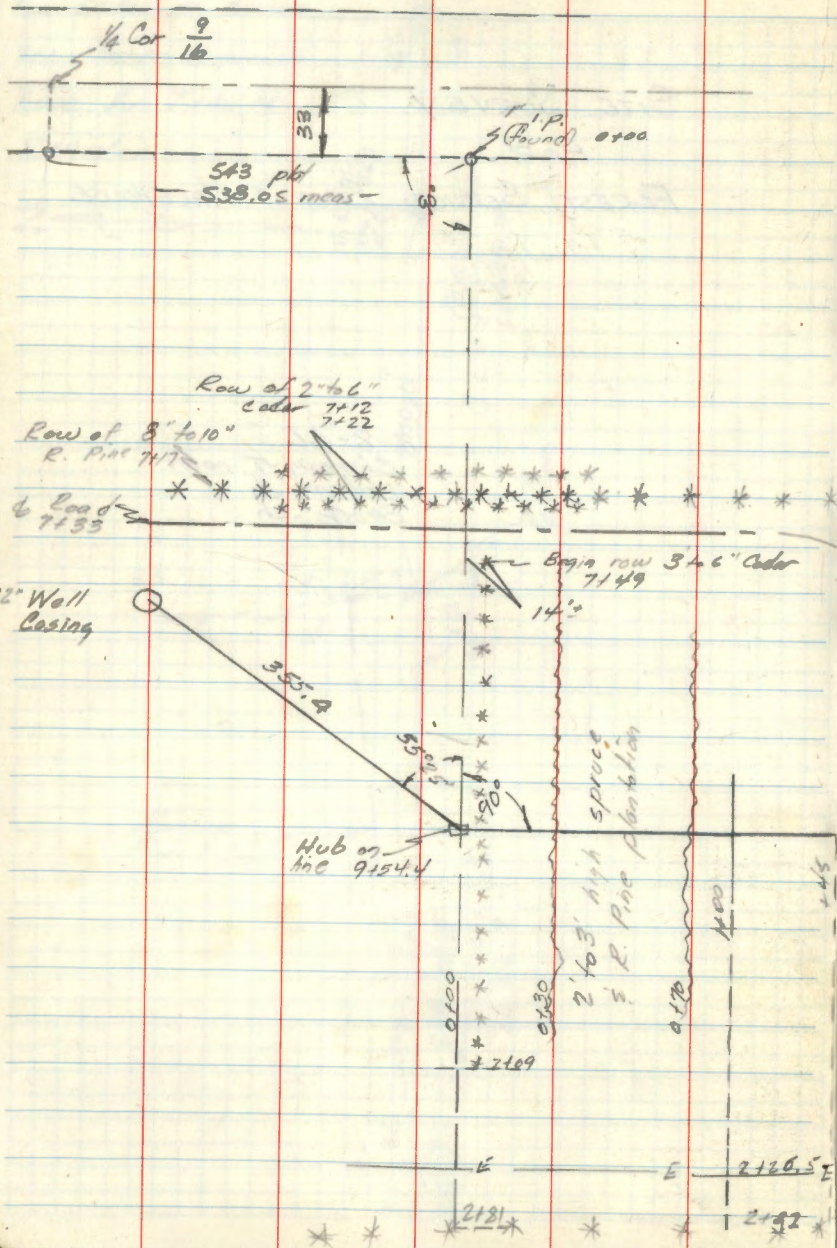 1/4 Cor 9/16
33
1" I.P.
(found) 0+00
543 pld
538.05 meas
90°
Row of 2" to 6"
Cedar 7+12
7+22
Row of 8" to 10"
R. Pine 7+17
℄ Road
7+33
Begin row 3 to 6" Cedar
7+49
14'±
12" Well
Casing
355.4
90°
Hub on
line 9+54.4
2' to 3' high spruce
& R. Pine plantation
0+00
0+30
0+70
1+00
+45
2+09
E
E
2+26.5
E
2+81
2+32